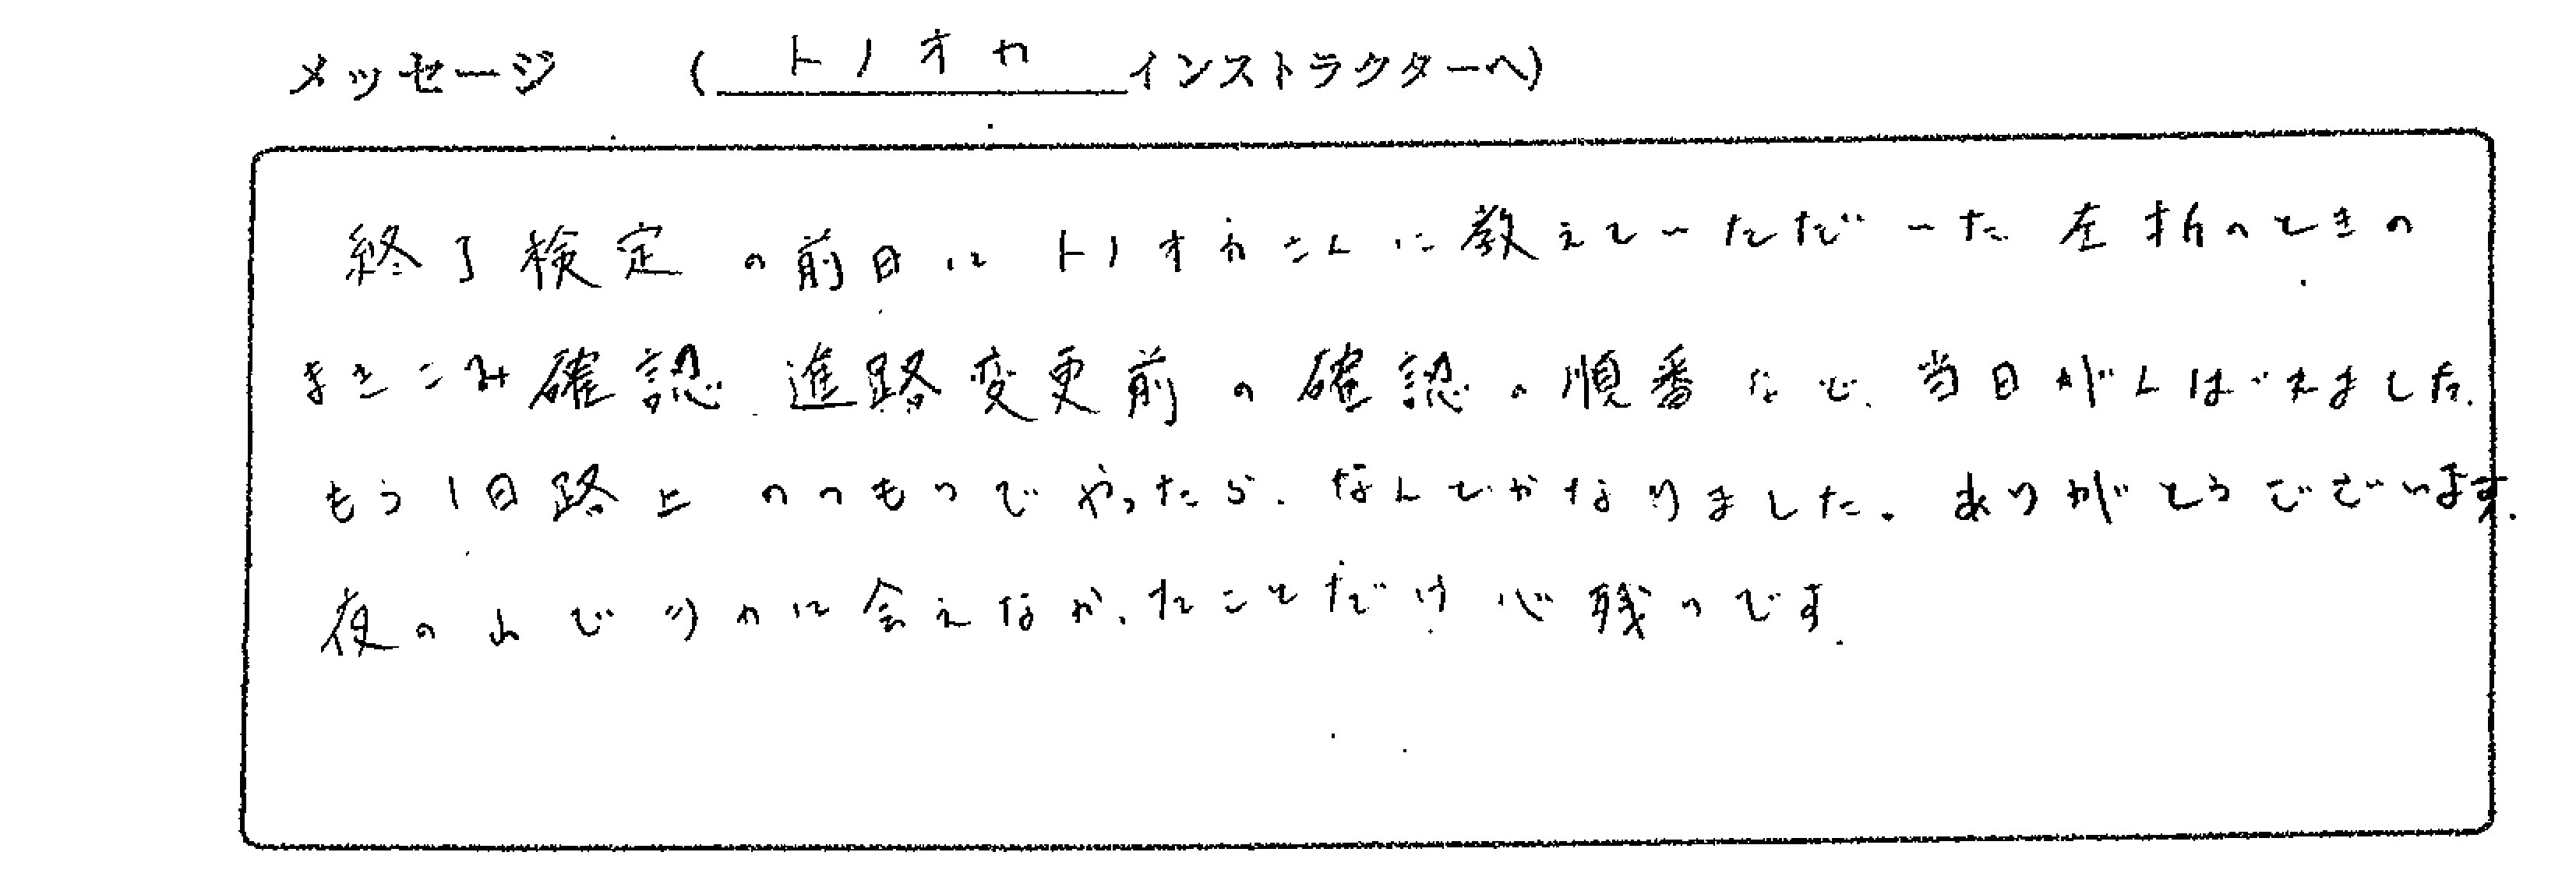 メッセージ (トノオカインストラクターへ)
終了検定の前日にトノオカさんに教えていただいた左折のときの
まきこみ確認、進路変更前の確認の順番など、当日がんばえました。
もう1日路上のつもりでやったら、なんとかなりました。ありがとうございます。
夜の山でシカに会えなかったことだけ心残りです。